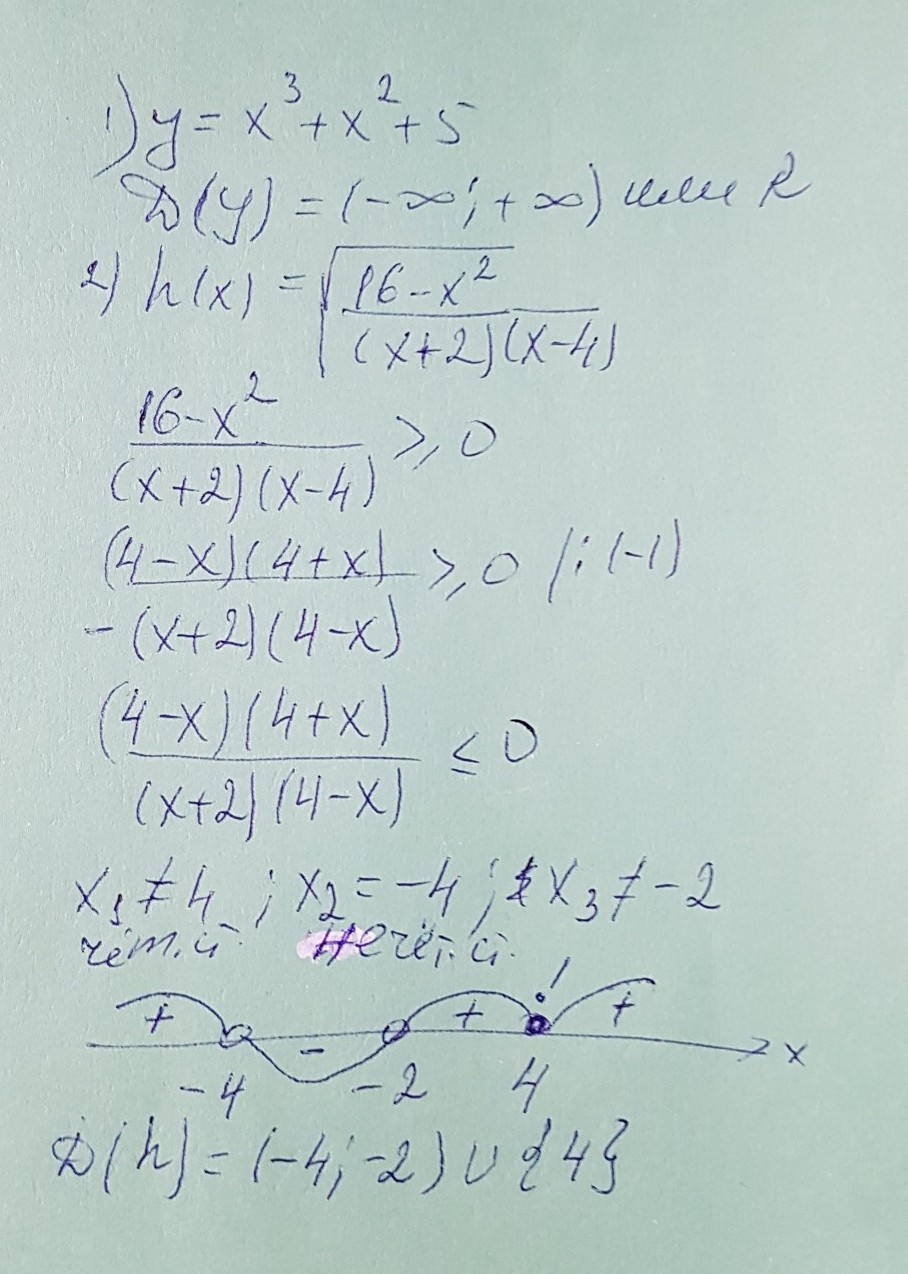 1) y = x³ + x² + 5
D(y) = (-∞; +∞) или R
2) h(x) = √((16-x²)/((x+2)(x-4)))
(16-x²)/((x+2)(x-4)) ≥ 0
((4-x)(4+x))/(-(x+2)(4-x)) ≥ 0 /: (-1)
((4-x)(4+x))/((x+2)(4-x)) ≤ 0
x₁ ≠ 4 ; x₂ = -4 ; x₃ ≠ -2
чёт.ст. нечёт.ст.
+ - + ! + x
-4 -2 4
D(h) = (-4; -2) ∪ {4}